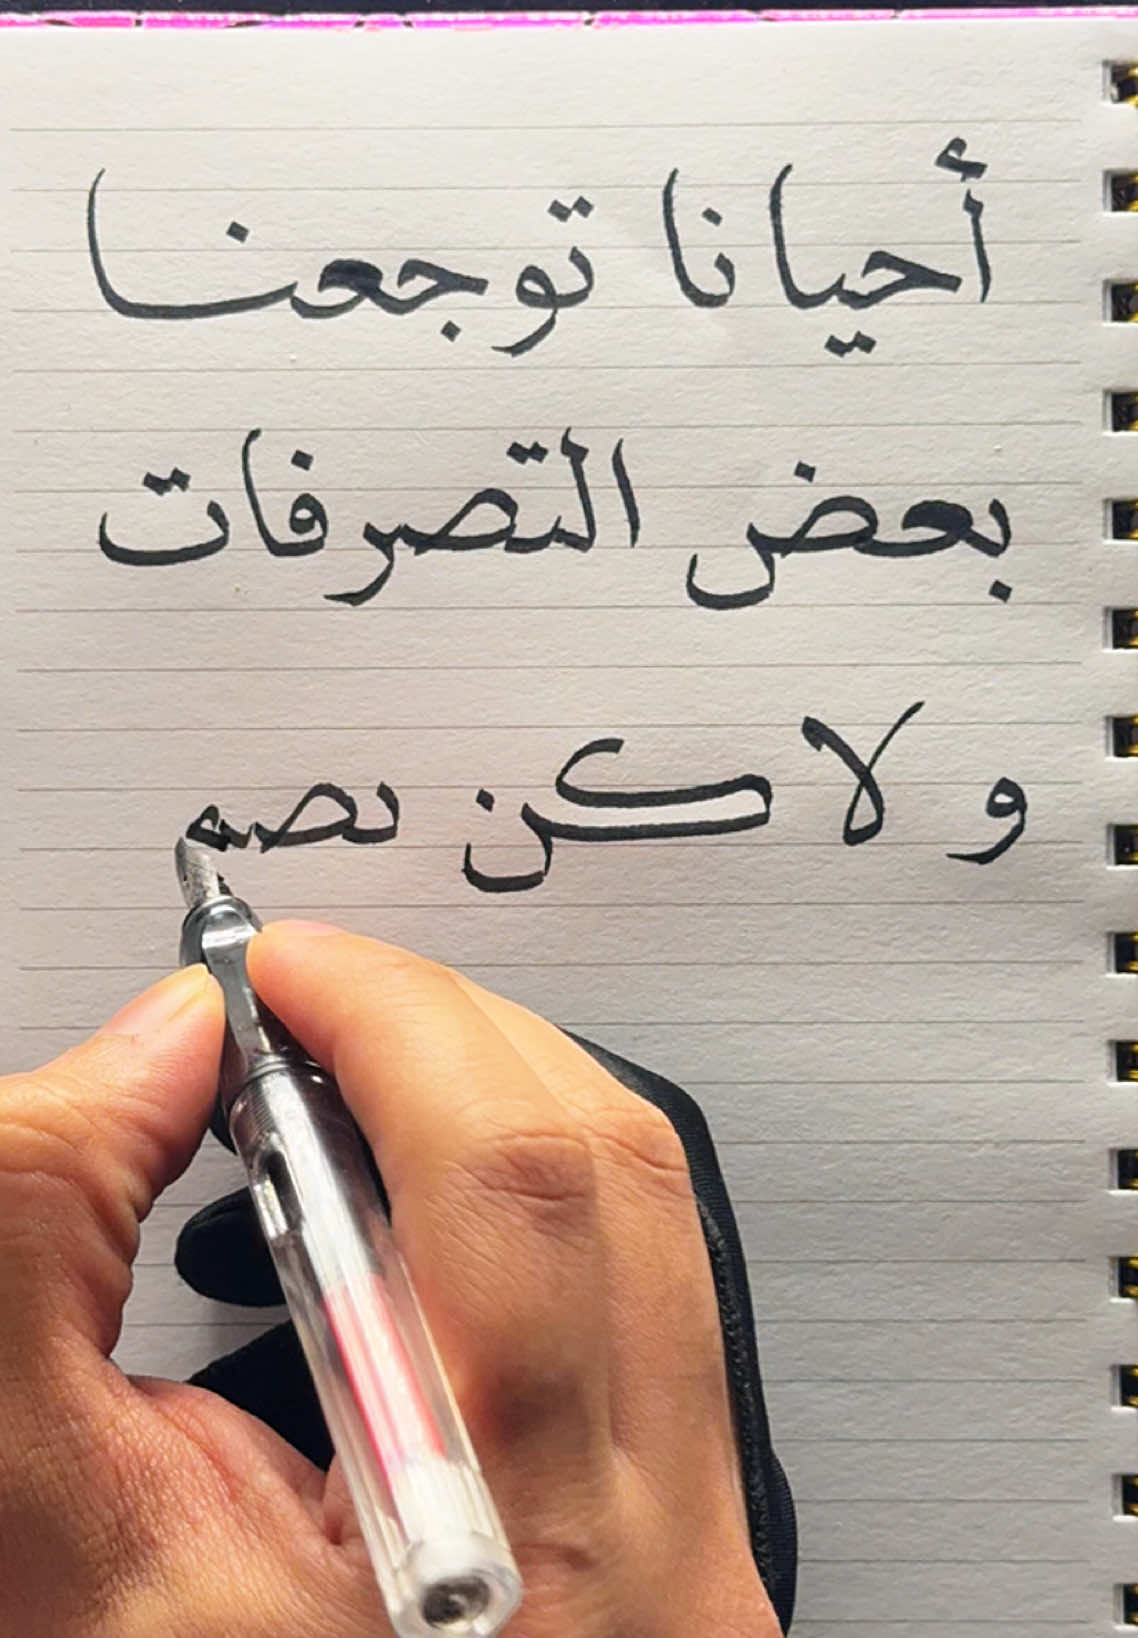 أحيانا توجعنا
بعض التصرفات
و لاكن